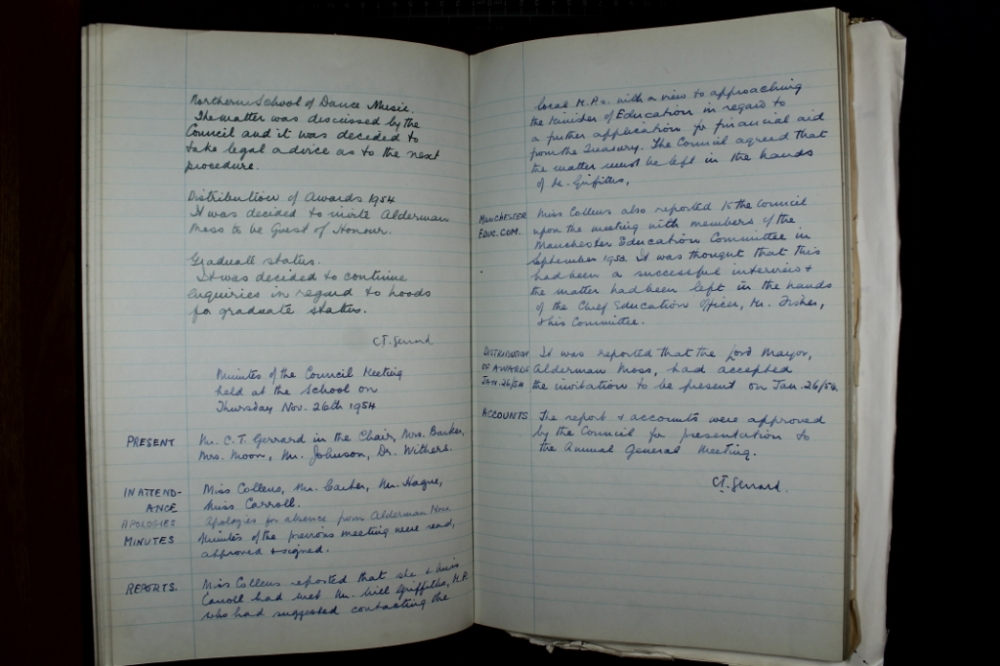 Northern School of Dance Music.
The matter was discussed by the
Council and it was decided to
take legal advice as to the next
procedure.
Distribution of Awards 1954
It was decided to invite Alderman
Moss to be Guest of Honour.
Graduate status.
It was decided to continue
enquiries in regard to hoods
for graduate status.
C.T. Gerrard
Minutes of the Council Meeting
held at the School on
Thursday Nov. 26th 1954
PRESENT Mr. C. T. Gerrard in the Chair, Mrs. Barker,
Mrs. Moon, Mr. Johnson, Dr. Withers.
IN ATTEND- Miss Collens, Mr. Hague,
ANCE Miss Carroll.
APOLOGIES Apologies for absence from Alderman
MINUTES Minutes of the previous meeting were read,
approved & signed.
REPORTS. Miss Collens reported that she & Miss
Carroll had met Mr. Will Griffiths, M.P.
who had suggested contacting the
local M.P.s. with a view to approaching
the Minister of Education in regard to
a further application for financial aid
from the Treasury. The Council agreed that
the matter must be left in the hands
of Mr. Griffiths.
MANCHESTER Miss Collens also reported to the Council
EDUC. COM. upon the meeting with members of the
Manchester Education Committee in
September 1953. It was thought that this
had been a successful interview &
the matter had been left in the hands
of the Chief Education Officer, Mr. Fisher,
& his Committee.
DISTRIBUTION It was reported that the Lord Mayor,
OF AWARDS Alderman Moss, had accepted
JAN. 26/54 the invitation to be present on Jan. 26/54.
ACCOUNTS The report & accounts were approved
by the Council for presentation to
the Annual General Meeting.
C.T. Gerrard.